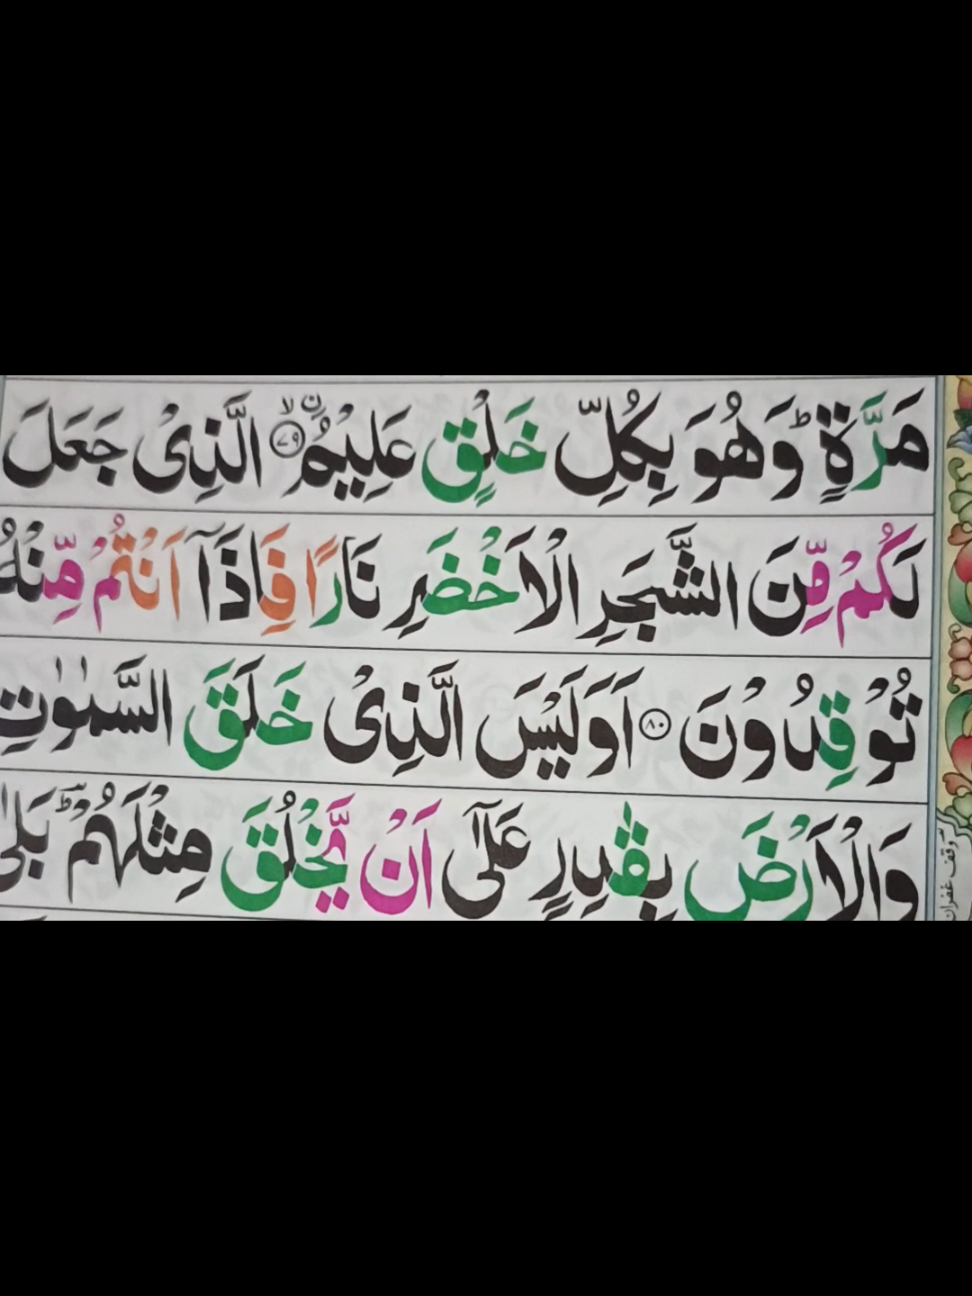 مَرَّةٍ ؕ وَهُوَ بِكُلِّ خَلْقٍ عَلِيْمُ ۙ﴿۷۹﴾ ۨ الَّذِیْ جَعَلَ
لَكُمْ مِّنَ الشَّجَرِ الْاَخْضَرِ نَارًا فَاِذَاۤ اَنْتُمْ مِّنْهُ
تُوْقِدُوْنَ ﴿۸۰﴾ اَوَلَيْسَ الَّذِیْ خَلَقَ السَّمٰوٰتِ
وَالْاَرْضَ بِقٰدِرٍ عَلٰۤى اَنْ يَّخْلُقَ مِثْلَهُمْ ؕ بَلٰى
وقف غفران